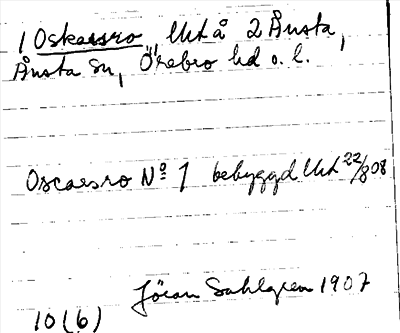 1 Oskarsro lht å 2 Ånsta,
Ånsta sn, Örebro hd o. l.
Oscarsro Nº 1 bebyggd lht 22/8 08
Jöran Sahlgren 1907
10 (6)